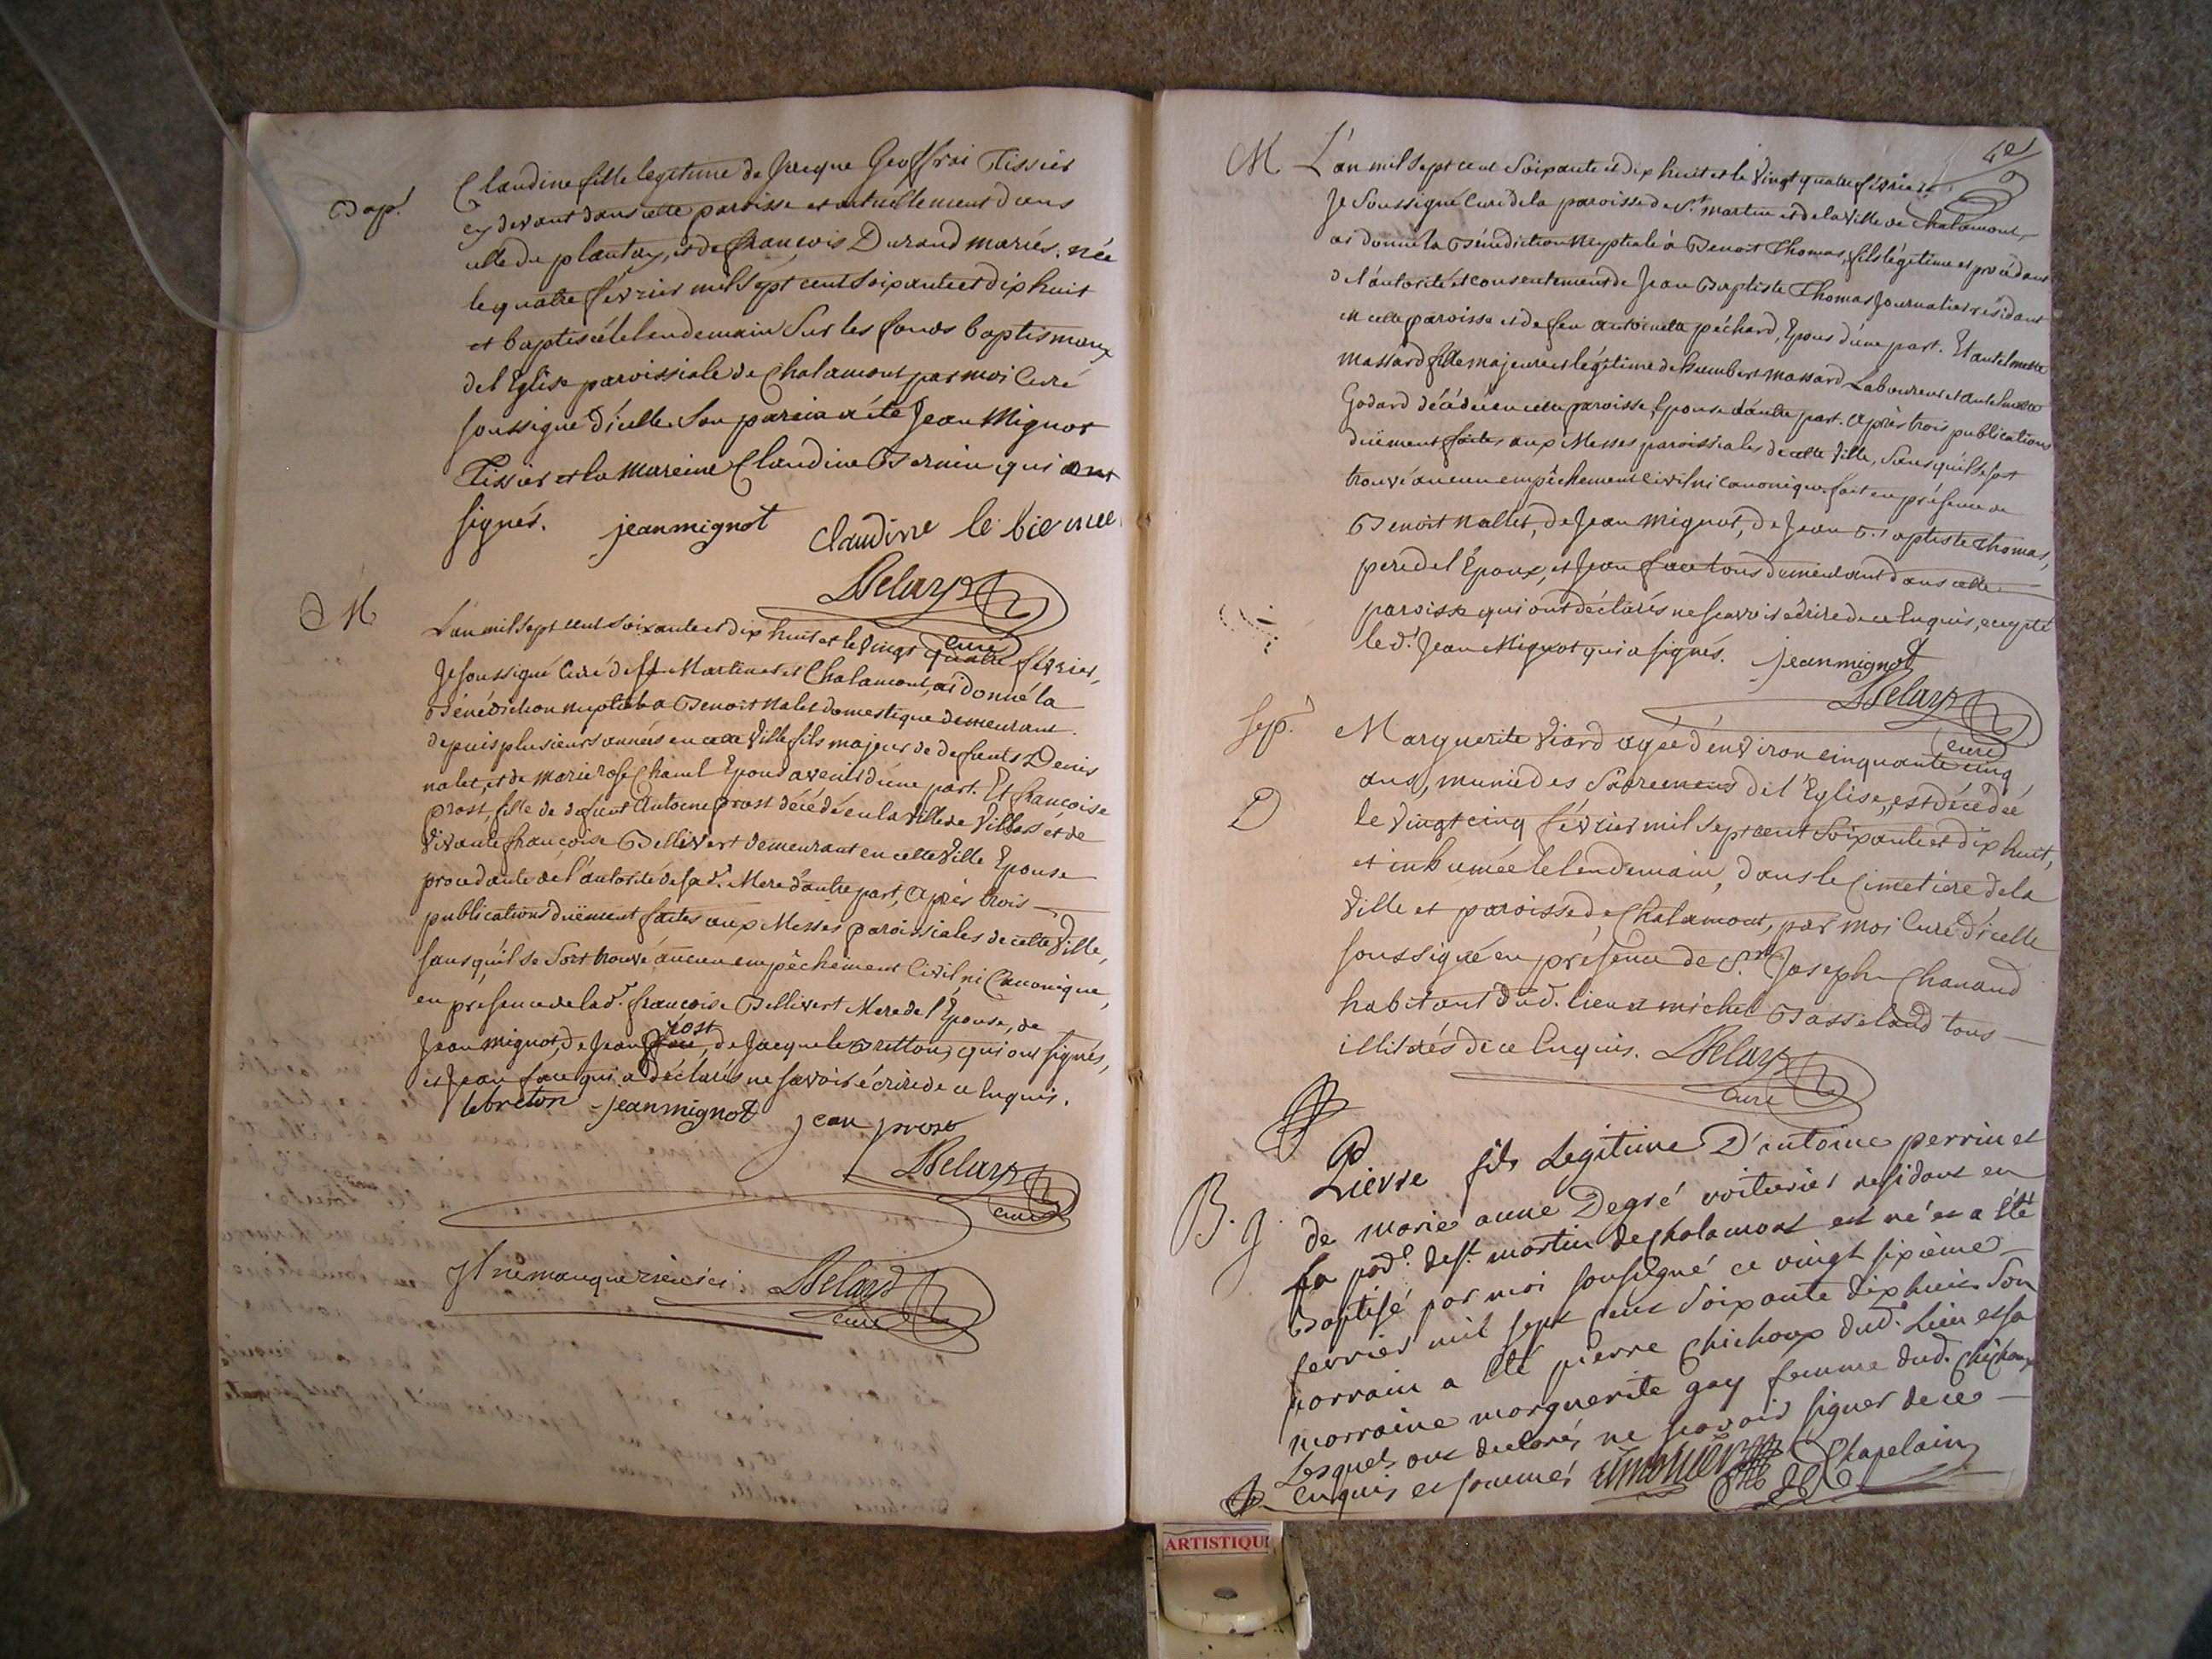 Bap.t
Claudine fille legitime de Jacque Geoffrai Tissier
cy devant dans cette paroisse et actuellement dans
celle du plantay, et de françois Durand mariés. née
le quatre février mil sept cent soixante et dix huit
et baptisée le lendemain sur les fonds baptismaux
de l'Eglise paroissiale de Chalamont par moi Curé
soussigné d'icelle. Son parein a été Jean Mignot
Tissier et la mareine Claudine Bernin qui ont
signés. jeanmignot Claudine le
Delarys
curé
M
L'an mil sept cent soixante et dix huit et le vingt quatre février,
Je soussigné Curé de St Martin et Chalamont, ai donné la
Bénédiction nuptiale a Benoit nalet domestique demeurant
depuis plusieurs années en cette Ville fils majeur de defunts Denis
nalet, et de marie rose Epoux avenir d'une part. Et françoise
prost, fille de defunt Antoine prost décédé en la Ville de Villars et de
vivante françoise Bellivert demeurant en cette Ville Epouse
procedante de l'autorité de sad.e Mere d'autre part, après trois
publications duëment faites aux Messes paroissiales de cette Ville,
sans qu'il se soit trouvé aucun empêchement Civil, ni Canonique,
en présence de lad.e françoise Bellivert Mere de l'Epouse, de
Jean mignot, de Jean prost, de Jacque le Bretton, qui ont signés,
et Jean face qui a déclarés ne savoir écrire de ce Enquis.
lebreton jeanmignot jean prost
Delarys
curé
Il ne manque rien ici Delarys
curé
4e
M
L'an mil sept cent soixante et dix huit et le Vingt quatre février
Je soussigné Curé de la paroisse de St. martin et de la Ville de Chalamont,
ai donné la Bénédiction Nuptiale à Benoit Thomas, fils légitime et procédant
de l'autorité et consentement de Jean Baptiste Thomas Journalier résidant
en cette paroisse et de feu antoinette péchard, Epoux d'une part. Et antelmette
Massard fille majeure et légitime de humbert Massard Laboureur et antelmette
Godard décédée en cette paroisse, Epouse d'autre part. Après trois publications
duëment faites aux Messes paroissiales de cette Ville, sans qu'il se soit
trouvé aucun empêchement Civil ni canonique. fait en présence de
Benoit Nallet, de Jean Mignot, de Jean Baptiste Thomas,
pere de l'Epoux, et Jean face tous demeurant dans cette
paroisse qui ont déclarés ne scavoir écrire de ce Enquis, excepté
le d. Jean Mignot qui a signés. jeanmignot
Delarys
curé
Sep.t
D
Marguerite Viard agée d'environ cinquante cinq
ans, munie des Sacremens de l'Eglise, est décédée
le vingt cinq février mil sept cent soixante et dix huit,
et inhumée le lendemain, dans le Cimetiere de la
Ville et paroisse de Chalamont, par moi Curé d'icelle
soussigné en présence de Sr. Joseph Chanand
habitant dud. lieu et michel Basseland tous
illitérés de ce Enquis. Delarys
curé
B. J
Pierre fils Legitime D'antoine perrin et
de marie anne Degré voiturier residant en
la par. de St. martin de Chalamont est né et a été
Baptisé par moi soussigné ce vingt sixieme
fevrier mil sept cent soixante dix huit. Son
parrain a été pierre Chichoux dud. Lieu et sa
marraine marguerite gay femme dud. Chichoux
Lesquels ont declarés ne scavoir signer de ce
enquis et sommés Chapelain
ARTISTIQU